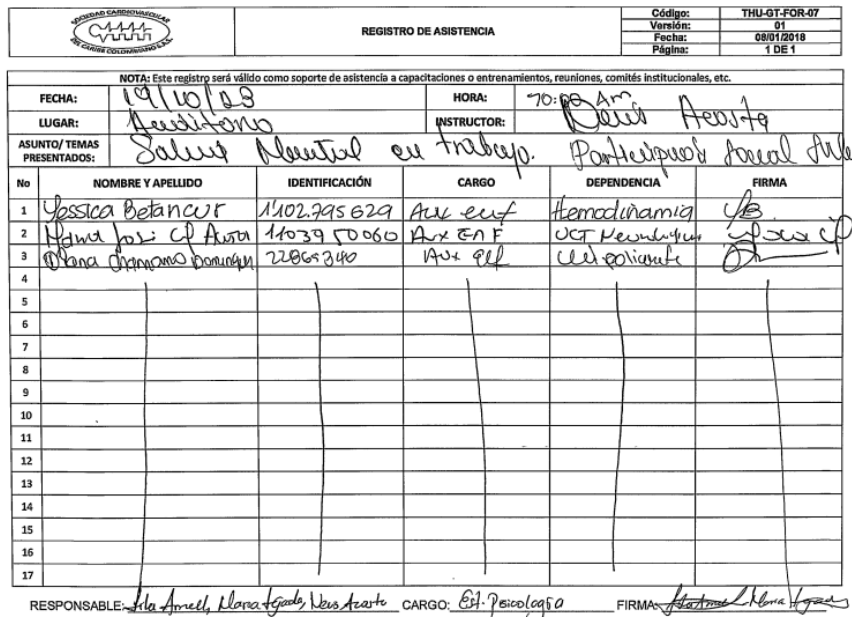 SOCIEDAD CARDIOVASCULAR
DEL CARIBE COLOMBIANO S.A.S.
REGISTRO DE ASISTENCIA
Código: THU-GT-FOR-07
Versión: 01
Fecha: 08/01/2018
Página: 1 DE 1
NOTA: Este registro será válido como soporte de asistencia a capacitaciones o entrenamientos, reuniones, comités institucionales, etc.
FECHA: 19/10/23 HORA: 10:00 Am
LUGAR: Auditorio INSTRUCTOR: Acosta
ASUNTO/ TEMAS PRESENTADOS: Salud Mental en trabajo.
No NOMBRE Y APELLIDO IDENTIFICACIÓN CARGO DEPENDENCIA FIRMA
1 Yessica Betancur 1'102.795629 Aux enf Hemodinamia YB
2 1103950060 Aux ENF
3 22865340 Aux enf
4
5
6
7
8
9
10
11
12
13
14
15
16
17
RESPONSABLE: CARGO: Est. Psicología FIRMA: